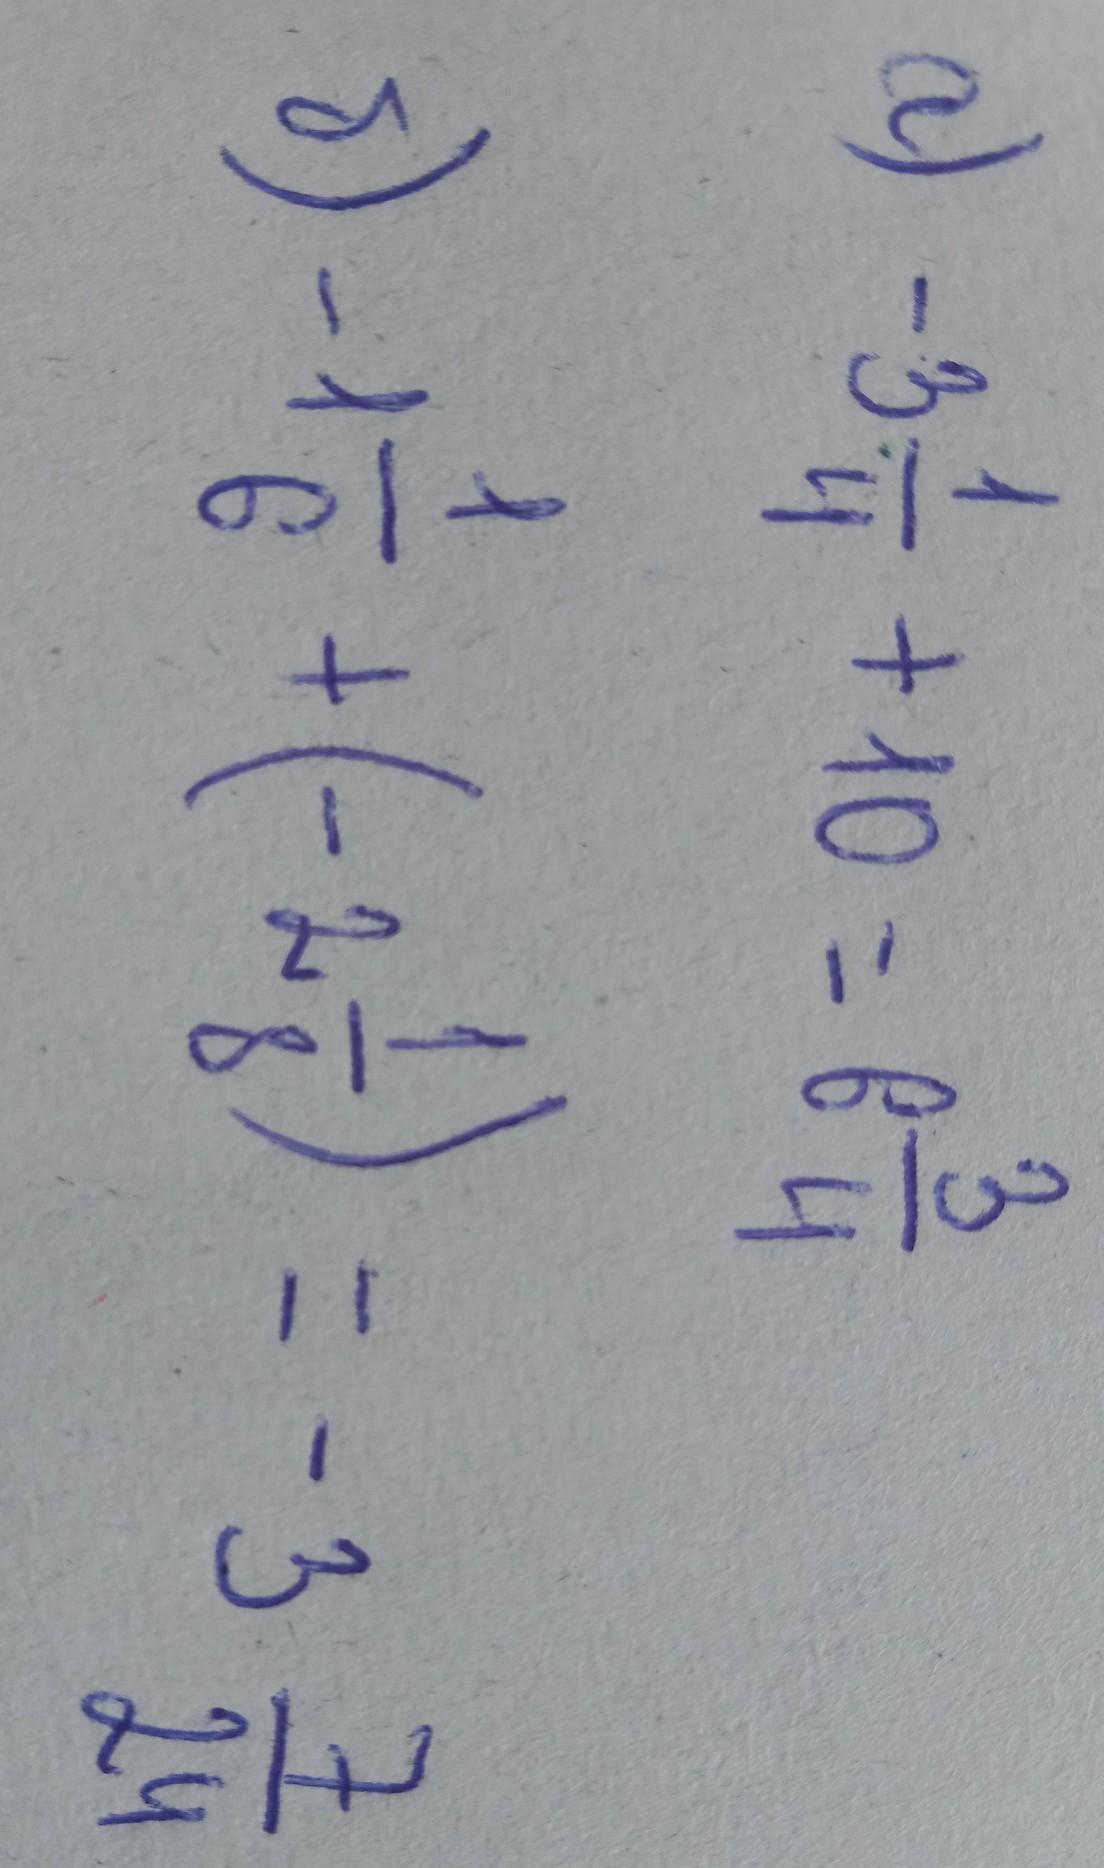 г) -3 1/4 + 10 = 6 3/4
д) -1 1/6 + (-2 1/8) = -3 7/24